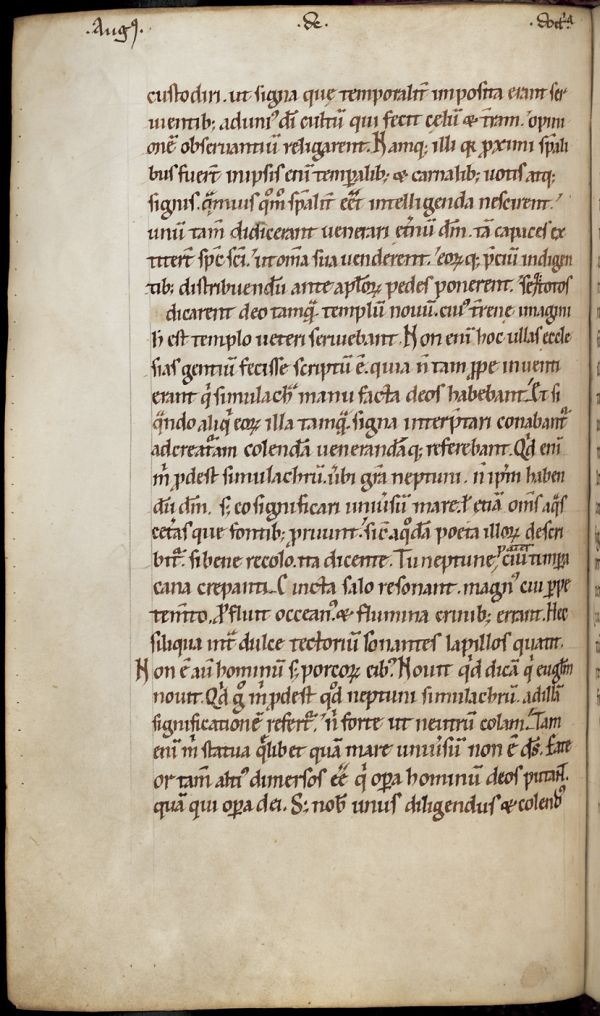 .Augꝰ. .de. .doct̄ª
custodiri. ut signa quę temporalit̄ imposita erant ser
uientib; ad uniꝰ dī cultū qui fecit celū & t̄ram. opini
onē obseruantiū religarent. Namq; illi qꝛ proximi sp̄ali
bus fuer̄ in ipsis enī temp̱alib; & carnalib; uotis atq;
signis. q̄muis qm̊ sp̄alit̄ eēt intelligenda nescirent.
unū tam̄ didicerant uenerari et̄nū dm̄. tā capaces ex
titer̄t spc̄ sc̄i. ut om̄a sua uenderent. eoꝝq; p̄ciū indigen
tib; distribuendū ante apl̄oꝝ pedes ponerent. seq; totos
dicarent deo tamq̄ templū nouū. cuiꝰ t̄rene imagini
h̄ est templo ueteri seruiebant. Non enī hoc ullas eccle
sias gentiū fecisse scriptū ē. quia n̄ tam ꝓpe inuenti
erant qͥ simulachª manu facta deos habebant. Et si
qͣndo aliqͥ eoꝝ illa tamqͣ signa interp̄tari conabant᷑
ad creat᷑am colendā uenerandāq; referebant. Qͥd enī
m̄ ꝓdest simulachrū. ubi gr̄a neptuni. n̄ ip̄m haben
dū dm̄. s; eo significari uniu̓sū mare. ł etiā om̄s aqͣs
cet̓as que fontib; ꝓruunt. sic̄ a qͦdā poeta illoꝝ descri
bit᷑. si bene recolo. ita dicente. Tu neptune pat̄ cuiꝰ timpora
cana crepanti. Cincta salo resonant. magnꝰ cui ꝑpe
te m̄to. ꝓfluit occeanꝰ. & flumina crinib; errant. Hec
siliqua int̄ dulce tectoriū sonantes lapillos quatit.
Non ē aū hominū s; porcoꝝ cibꝰ. Nouit qͥd dicā qͥ eugl̄m
nouit. Qͥd gͦ m̄ ꝓdest qͦd neptuni simulachrū. ad illā
significationē refert᷑. n̄ forte ut neutrū colam. Tam
enī m̄ statua qͣlibet quā mare uniu̓sū non ē ds̄. Fate
or tam̄ altiꝰ dimersos eē qͥ oꝑa hominū deos putant.
quā qui oꝑa dei. S; nob̄ unus diligendus & colendꝰ